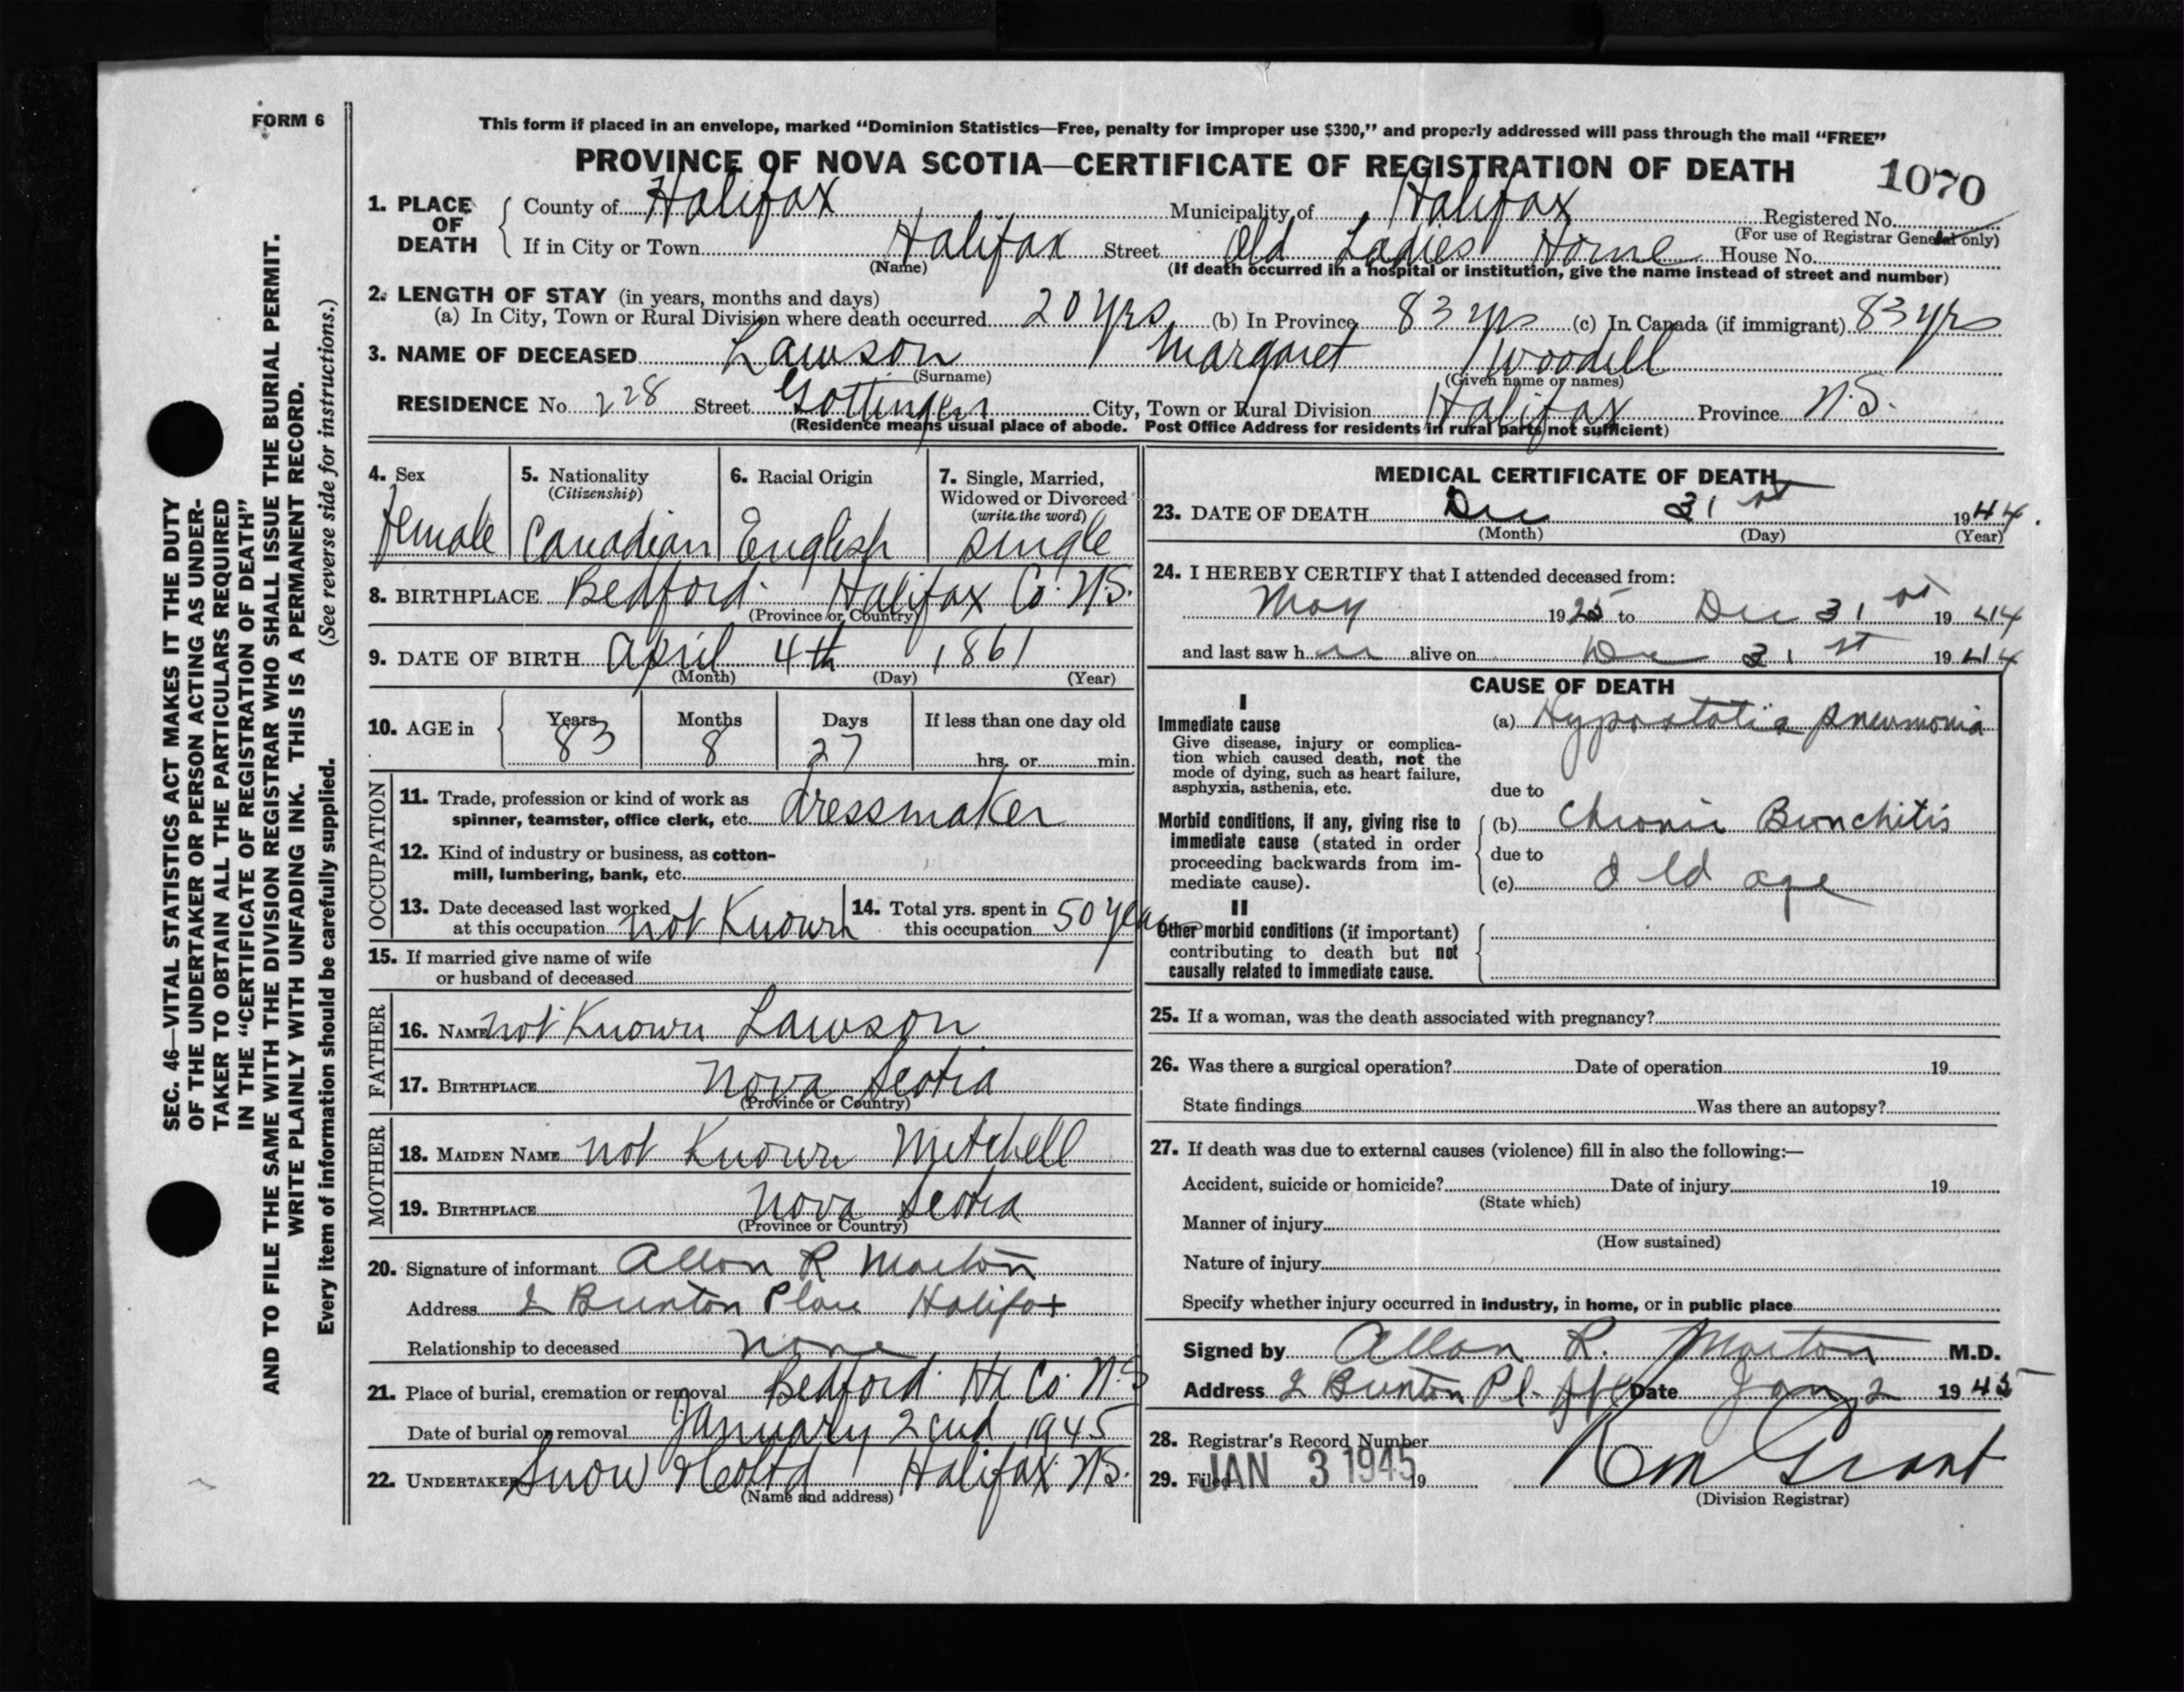 FORM 6
This form if placed in an envelope, marked “Dominion Statistics—Free, penalty for improper use $300,” and properly addressed will pass through the mail “FREE”
PROVINCE OF NOVA SCOTIA—CERTIFICATE OF REGISTRATION OF DEATH
1070
1. PLACE OF DEATH
County of Halifax Municipality of Halifax Registered No.
(For use of Registrar General only)
If in City or Town Halifax Street Old Ladies Home House No.
(Name) (If death occurred in a hospital or institution, give the name instead of street and number)
2. LENGTH OF STAY (in years, months and days)
(a) In City, Town or Rural Division where death occurred 20 yrs (b) In Province 83 yrs (c) In Canada (if immigrant) 83 yrs
3. NAME OF DECEASED Lawson Margaret Woodill
(Surname) (Given name or names)
RESIDENCE No. 228 Street Gottingen City, Town or Rural Division Halifax Province N.S.
(Residence means usual place of abode. Post Office Address for residents in rural parts not sufficient)
4. Sex
female
5. Nationality
(Citizenship)
Canadian
6. Racial Origin
English
7. Single, Married,
Widowed or Divorced
(write the word)
single
8. BIRTHPLACE Bedford Halifax Co. N.S.
(Province or Country)
9. DATE OF BIRTH April 4th 1861
(Month) (Day) (Year)
10. AGE in
Years Months Days If less than one day old
83 8 27 hrs. or min.
OCCUPATION
11. Trade, profession or kind of work as
spinner, teamster, office clerk, etc. dressmaker
12. Kind of industry or business, as cotton-
mill, lumbering, bank, etc.
13. Date deceased last worked
at this occupation not Known
14. Total yrs. spent in
this occupation 50 years
15. If married give name of wife
or husband of deceased
FATHER
16. NAME not Known Lawson
17. BIRTHPLACE Nova Scotia
(Province or Country)
MOTHER
18. MAIDEN NAME not Known Mitchell
19. BIRTHPLACE Nova Scotia
(Province or Country)
20. Signature of informant Allan R Morton
Address 2 Brunton Place Halifax
Relationship to deceased none
21. Place of burial, cremation or removal Bedford Hx Co. N.S
Date of burial or removal January 2cnd 1945
22. UNDERTAKER Snow & Co Ltd Halifax N.S.
(Name and address)
MEDICAL CERTIFICATE OF DEATH
23. DATE OF DEATH Dec 31st 1944.
(Month) (Day) (Year)
24. I HEREBY CERTIFY that I attended deceased from:
May 1925 to Dec 31st 1944
and last saw her alive on Dec 31st 1944
CAUSE OF DEATH
I
Immediate cause
Give disease, injury or complica-
tion which caused death, not the
mode of dying, such as heart failure,
asphyxia, asthenia, etc.
(a) Hypostatic pneumonia
due to
Morbid conditions, if any, giving rise to
immediate cause (stated in order
proceeding backwards from im-
mediate cause).
(b) Chronic Bronchitis
due to
(c) Old age
II
Other morbid conditions (if important)
contributing to death but not
causally related to immediate cause.
25. If a woman, was the death associated with pregnancy?
26. Was there a surgical operation? Date of operation 19
State findings Was there an autopsy?
27. If death was due to external causes (violence) fill in also the following:—
Accident, suicide or homicide? Date of injury 19
(State which)
Manner of injury
(How sustained)
Nature of injury
Specify whether injury occurred in industry, in home, or in public place
Signed by Allan R. Morton M.D.
Address 2 Brunton Pl. Hfx Date Jan 2 1945
28. Registrar's Record Number
29. Filed JAN 3 1945 19
Grant
(Division Registrar)
SEC. 46—VITAL STATISTICS ACT MAKES IT THE DUTY
OF THE UNDERTAKER OR PERSON ACTING AS UNDER-
TAKER TO OBTAIN ALL THE PARTICULARS REQUIRED
IN THE “CERTIFICATE OF REGISTRATION OF DEATH”
AND TO FILE THE SAME WITH THE DIVISION REGISTRAR WHO SHALL ISSUE THE BURIAL PERMIT.
WRITE PLAINLY WITH UNFADING INK. THIS IS A PERMANENT RECORD.
Every item of information should be carefully supplied. (See reverse side for instructions.)